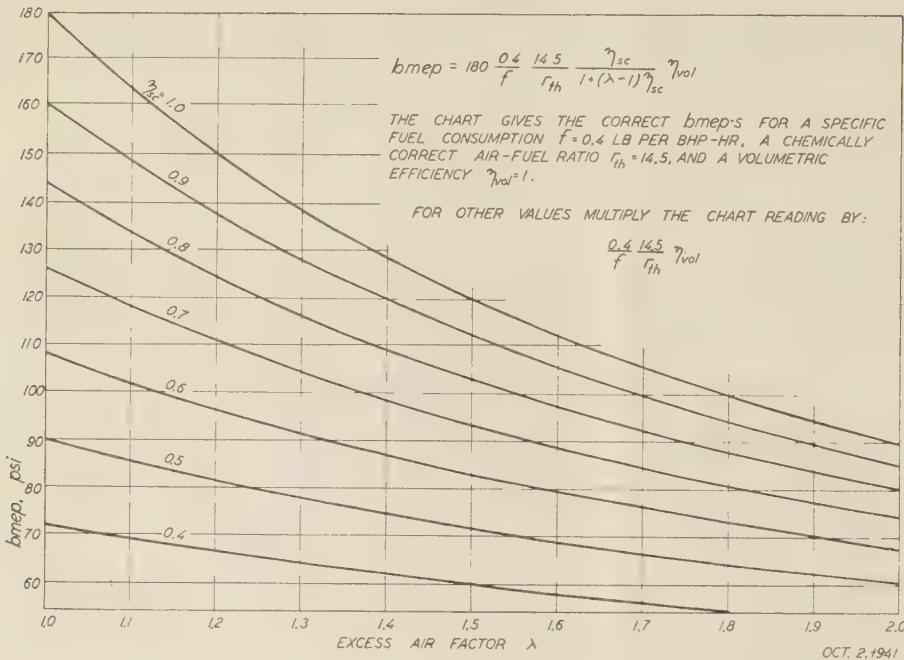 180
170
160
150
140
130
120
110
100
90
80
70
60
bmep, psi
bmep = 180 0.4/f 14.5/r_th η_sc/1+(λ-1)η_sc η_vol
THE CHART GIVES THE CORRECT bmep-s FOR A SPECIFIC
FUEL CONSUMPTION f = 0.4 LB PER BHP-HR, A CHEMICALLY
CORRECT AIR-FUEL RATIO r_th = 14.5, AND A VOLUMETRIC
EFFICIENCY η_vol = 1.
FOR OTHER VALUES MULTIPLY THE CHART READING BY:
0.4/f 14.5/r_th η_vol
η_sc = 1.0
0.9
0.8
0.7
0.6
0.5
0.4
1.0 1.1 1.2 1.3 1.4 1.5 1.6 1.7 1.8 1.9 2.0
EXCESS AIR FACTOR λ
OCT. 2, 1941